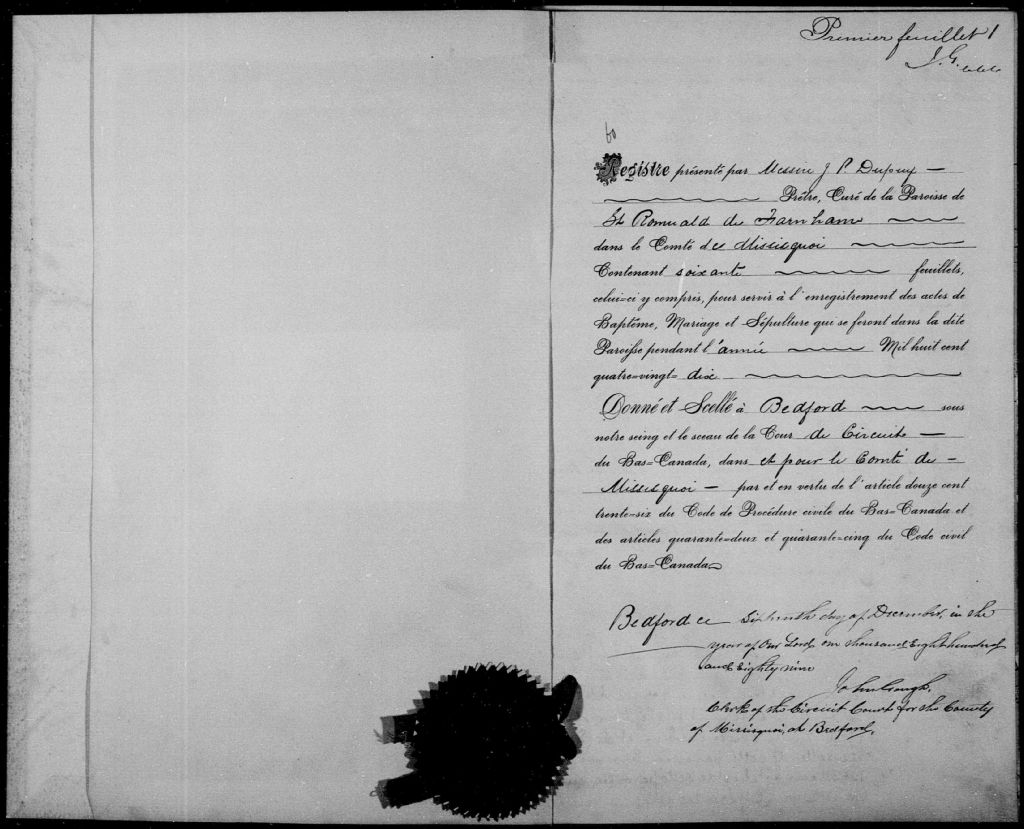 Premier feuillet 1
J. G.
60
Registre présenté par Messire J P. Dupuy
Prêtre, Curé de la Paroisse de
St Romuald de Farnham
dans le Comté de Missisquoi
Contenant soixante feuillets,
celui-ci y compris, pour servir à l'enregistrement des actes de
Baptême, Mariage et Sépulture qui se feront dans la dite
Paroisse pendant l'année Mil huit cent
quatre-vingt-dix
Donné et Scellé à Bedford sous
notre seing et le sceau de la Cour de Circuit
du Bas-Canada, dans et pour le Comté de
Missisquoi par et en vertu de l'article douze cent
trente-six du Code de Procédure civile du Bas-Canada et
des articles quarante-deux et quarante-cinq du Code civil
du Bas-Canada
Bedford ce Sixteenth day of December, in the
year of Our Lord one thousand Eight hundred
and Eighty nine
John Gough.
Clerk of the Circuit Court for the County
of Missisquoi, at Bedford.